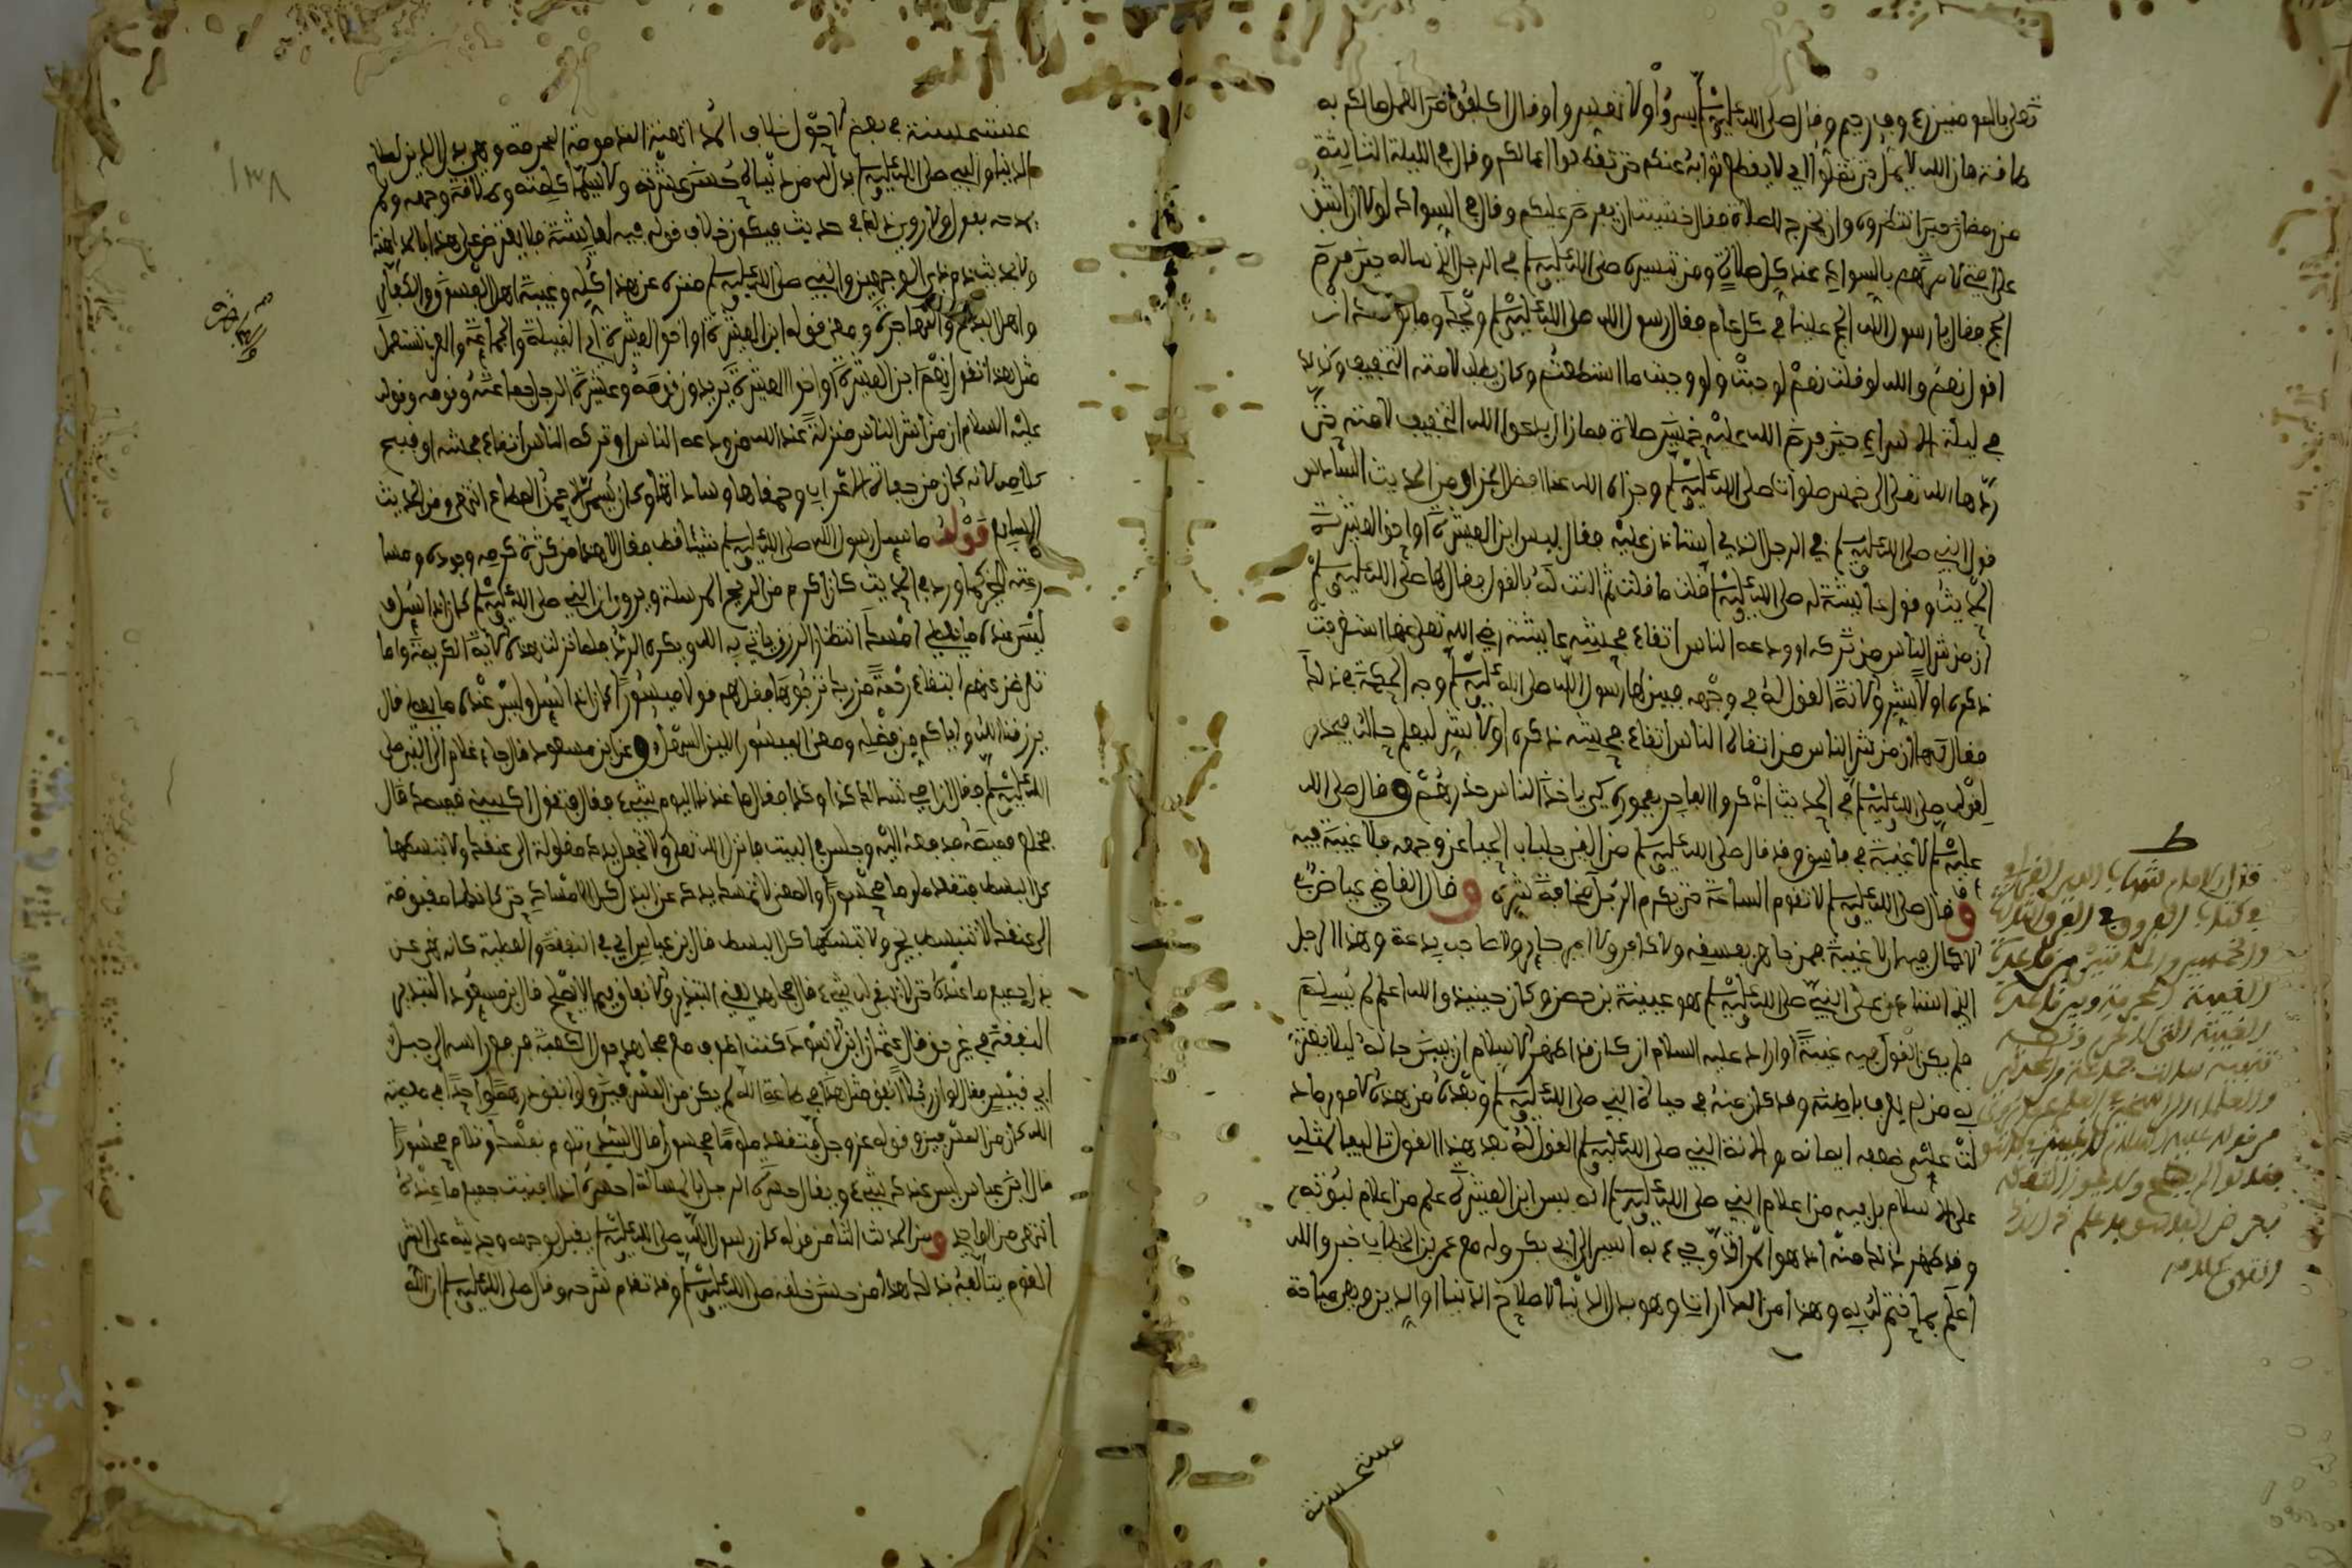 تعلى بالمومنين رءوف رحيم وقال صلى الله عليه وسلم يسروا ولا تعسروا وقال اكلفوا من العمل ما لكم به
طاقة فان الله لا يمل حتى تملوا اي لا يقطع ثوابه عنكم حتى تقطعوا اعمالكم وقال في الليلة الثالثة
من رمضان حين انتظروه وان يخرج للصلاة فقال خشيت ان يفرض عليكم وقال في السواك لولا ان اشق
على امتي لامرتهم بالسواك عند كل صلاة ومن تيسيره صلى الله عليه وسلم في الرجل الذي ساله حين فرض
الحج فقال يا رسول الله الحج علينا في كل عام فقال رسول الله صلى الله عليه وسلم ويحك وما يومنك ان
اقول نعم والله لو قلت نعم لوجبت ولو وجبت ما استطعتم وكان يطلب لامته التخفيف وكذلك
في ليلة الاسراء حين فرض الله عليه خمسين صلاة فما زال يدعوا الله التخفيف لامته حتى
ردها الله تعلى الى خمس صلوات صلى الله عليه وسلم وجزاه الله عنا افضل الجزاء ومن الحديث السادس
قول النبي صلى الله عليه وسلم في الرجل الذي استاذن عليه فقال بيس ابن العشيرة او اخو العشيرة
الحديث وقول عايشة له صلى الله عليه وسلم قلت ما قلت ثم النت له القول فقال لها صلى الله عليه وسلم
ان من شر الناس من تركه او ودعه الناس اتقاء فحشه عايشة رضي الله تعلى عنها استغربت
ذكره اولا بشر والانة القول له في وجهه فبين لها رسول الله صلى الله عليه وسلم وجه الحكمة في ذلك
فقال لها ان من شر الناس من اتقاه الناس اتقاء فحشه ذكره اولا بشر ليعلم حاله فيحذر
لقوله صلى الله عليه وسلم في الحديث اذكروا الفاجر بفجوره كي ياخذ الناس حذرهم وقال صلى الله
عليه وسلم لا غيبة في فاسق وقد قال صلى الله عليه وسلم من القى جلباب الحيا عن وجهه فلا غيبة فيه
وقال صلى الله عليه وسلم لا تقوم الساعة حتى يكرم الرجل مخافة شره وقال القاضي عياض في
الاكمال فيه ان لا غيبة فيمن جاهر بفسقه ولا كافر ولا امير جاير ولا صاحب بدعة وهذا الرجل
الذي استاذن على النبي صلى الله عليه وسلم هو عيينة بن حصن وكان حينيذ والله اعلم لم يسلم
فلم يكن القول فيه غيبة او اراد عليه السلام ان كان قد اظهر الاسلام ان يبين حاله ليلا يغتر
به من لم يعرف باطنه وقد كان منه في حياة النبي صلى الله عليه وسلم وبعده من هذه الامور ما د
لت على ضعف ايمانه والانة النبي صلى الله عليه وسلم القول له بعد هذا القول تاليفا لمثله
على الاسلام بل فيه من اعلام النبي صلى الله عليه وسلم انه بيس ابن العشيرة علم من اعلام نبوته
وقد ظهر ذلك منه اذ هو ممن ارتد وجيء به اسيرا الى ابي بكر وله مع عمر بن الخطاب خبر والله
اعلم بما ختم له به وهذا من المداراة وهو بذل الدنيا لاصلاح الدنيا او الدين وهي مباحة
مستحسنة
قال الامام شهاب الدين القرافي
في كتاب الفروق الفرق الثالث
والخمسين والمائتين بين قاعدة
الغيبة المحرمة وبين قاعدة
الغيبة التي لا تحرم
مستحسنة في بعض الاحوال خلاف المداهنة المذمومة المحرمة وهي بذل الدين لصلاح
الدنيا والنبي صلى الله عليه وسلم بذل له من دنياه حسن عشرته ولا سيما كلمته وطلاقة وجهه ولم
يمدحه بقول ولا روي ذلك في حديث فيكون خلاف قوله فيه لعايشة فلا يعترض على هذا بالمداهنة
ولا بحديث ذي الوجهين والنبي صلى الله عليه وسلم منزه عن هذا كله وغيبة اهل الفسوق والكفار
واهل البدع والمجاهرة ومعنى قوله ابن العشيرة او اخو العشيرة اي القبيلة والجماعة والعرب تستعمل
مثل هذا تقول نعم ابن العشيرة او اخو العشيرة يريدون قومه وعشيرة الرجل جماعته وقومه وقوله
عليه السلام ان من شر الناس منزلة عند الله من ودعه الناس او تركه الناس اتقاء فحشه او قبيح
كلامه لانه كان من جفاة الاعراب وحمقاها وساداتها وكان يسمى الاحمق المطاع انتهى ومن الحديث
السابع قوله ما سيل رسول الله صلى الله عليه وسلم شيئا قط فقال لا هذا من كثرة كرمه وجوده ومسا
رعته للخير كما ورد في الحديث كان اكرم من الريح المرسلة ويروى ان النبي صلى الله عليه وسلم كان اذا سيل و
ليس عنده ما يعطي امسك انتظار الرزق ياتي به الله ويكره الرد فلما نزلت هذه الاية الكريمة واما
تعرضن عنهم ابتغاء رحمة من ربك ترجوها فقل لهم قولا ميسورا كان اذا سيل وليس عنده ما يعطي قال
يرزقنا الله واياكم من فضله ومعنى الميسور اللين السهل وعن ابن مسعود قال جاء غلام الى النبي صلى
الله عليه وسلم فقال ان امي تسالك كذا وكذا فقال ما عندنا اليوم شيء فقال فتقول اكسني قميصك قال
فخلع قميصه فدفعه اليه وجلس في البيت فانزل الله تعلى ولا تجعل يدك مغلولة الى عنقك ولا تبسطها
كل البسط فتقعد ملوما محسورا والمعنى لا تمسك يدك عن البذل كل الامساك حتى كانها مقبوضة
الى عنقك لا تنبسط بخير ولا تبسطها كل البسط قال ابن عباس اي في النفقة والعطية كانه نهى عن
بذل جميع ما عنده حتى لا يبقى له شيء قال مجاهد يعني التبذير والانفاق فيما لا يصلح قال ابن مسعود التبذير
النفقة في غير حق قال عثمان ابن الاسود كنت اطوف مع مجاهد حول الكعبة فرفع راسه الى جبل
ابي قبيس فقال لو ان رجلا انفق مثل هذا في طاعة الله لم يكن من المسرفين ولو انفق درهما واحدا في معصية
الله كان من المسرفين وقوله عز وجل فتقعد ملوما محسورا قال السدي تلوم نفسك وتلام محسورا
قال ابن عباس ليس عندك شيء ويقال حسره الرجل بالمسالة احسره اذا افنيت جميع ما عنده
انتهى من الواحدي ومن الحديث الثامن قوله كان رسول الله صلى الله عليه وسلم يقبل بوجهه وحديثه على اشر
القوم يتالفه بذلك هذا من حسن خلقه صلى الله عليه وسلم وقد تقدم شرحه وقال صلى الله عليه وسلم ان الله
١٣٨